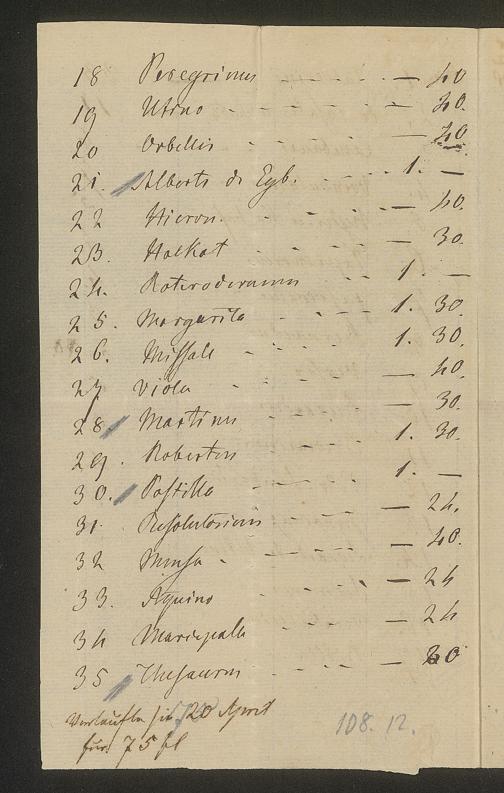 18 Peregrinus - - - — 40
19 Utino - - - - — 30.
20 Orbellis - — 40
21. Alberti de Eyb. - - 1. —
22 Hieron. - - - — 40.
23. Holkot - - - — 30.
24. Roterodamus - - 1. —
25. Margarita - - - 1. 30.
26. Missale - - - 1. 30.
27 Viola - - - — 40.
28 Martinus - - - — 30.
29. Robertus - - - 1. 30.
30. Postilla - - - 1. —
31. Resolutorium - - — 24.
32 Mensa - - - — 40.
33. Aquino - - - — 24
34 Marispalla - - - — 24
35 Thesaurus - - - — 30
Verkaufte sie 20 April
für 75 fl
108. 12.